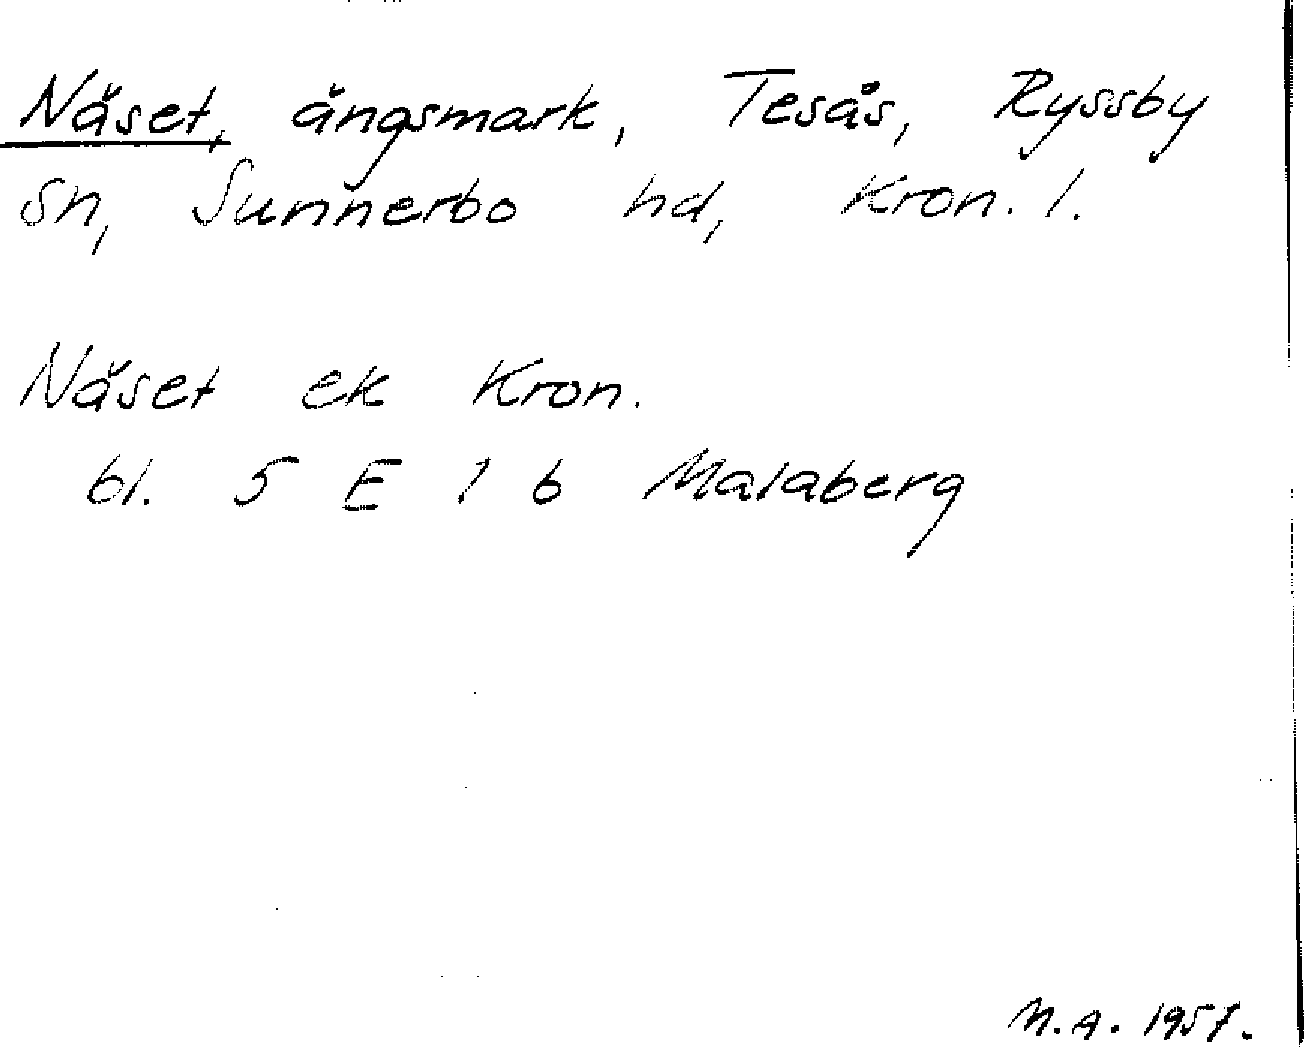 Näset, ängsmark, Tesås, Ryssby
sn, Sunnerbo hd, Kron. l.
Näset ek Kron.
bl. 5 E 1 b Malaberg
M.A. 1957.